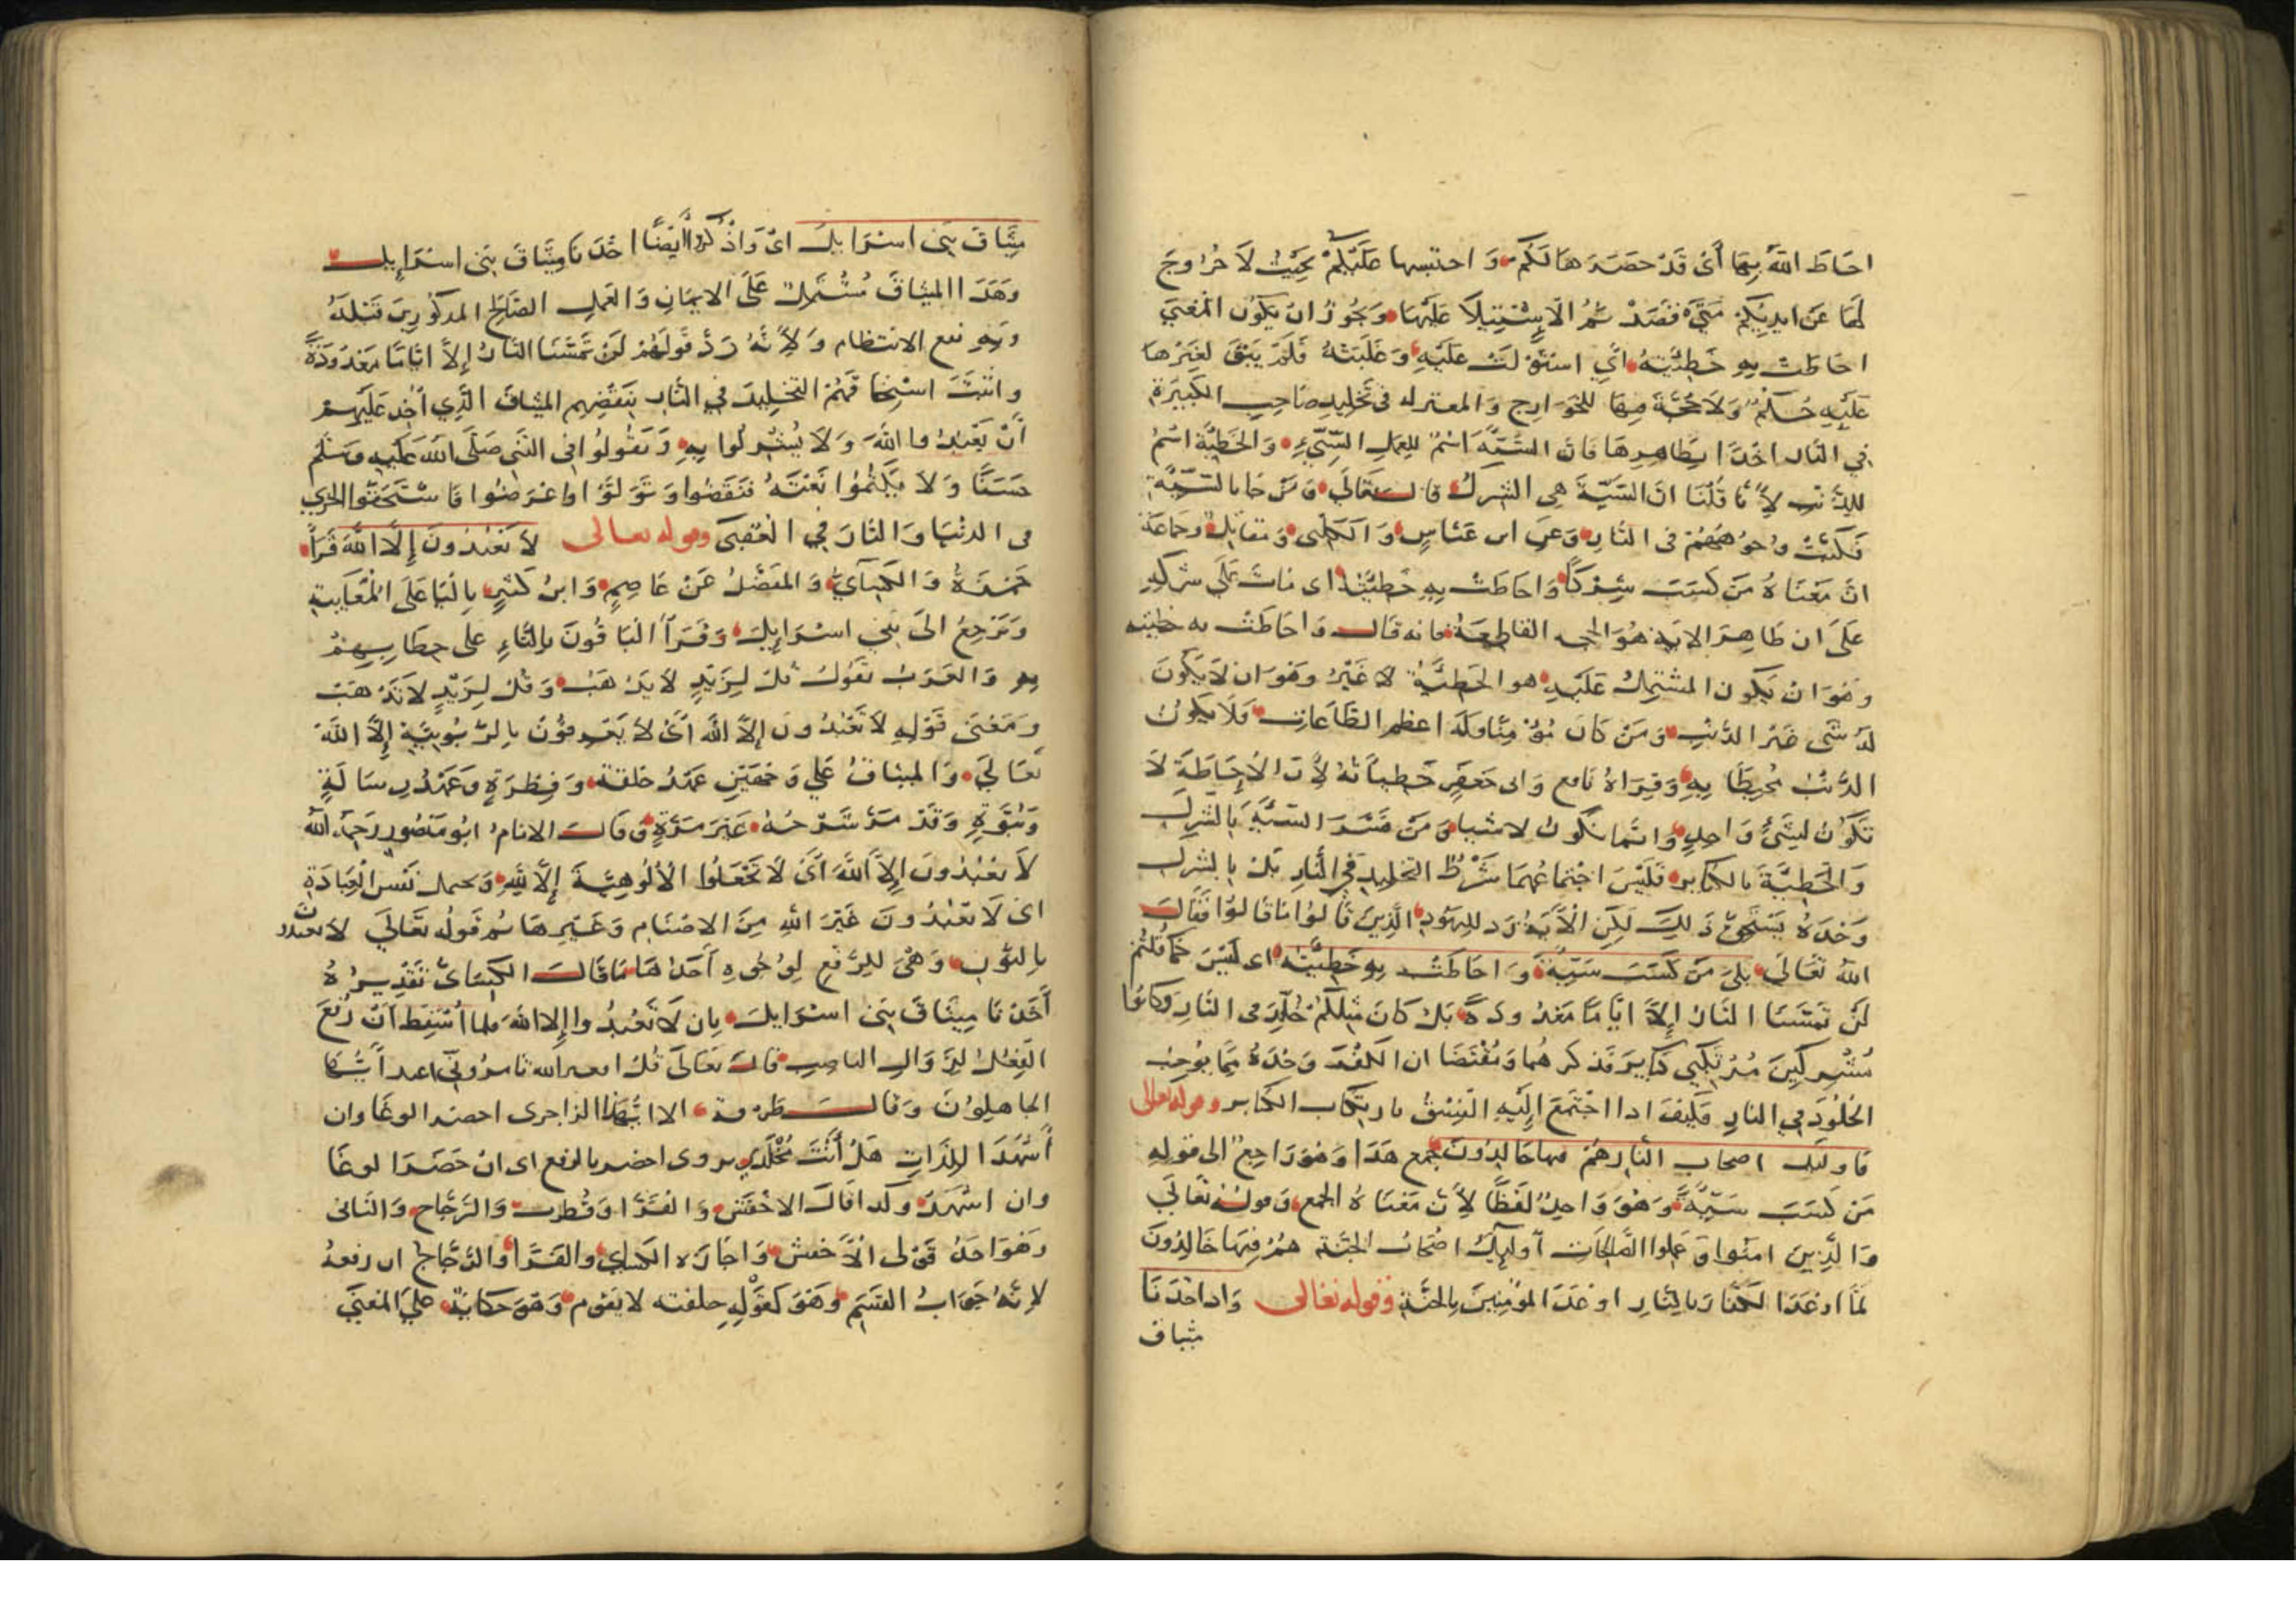 احاط الله بها أي قد حصرها لكم واحتبسها عليكم بحيث لا خروج
لها عن ايديكم متى قصد ثم الاستيلا عليها ويجوز ان يكون المعني
احاطت به خطيئته اي استولت عليه وغلبته فلم يبق لغيرها
عليه حكم ولا حجة فيها للخوارج والمعتزله في تخليد صاحب الكبيرة
في النار اخذا بظاهرها فان السيئة اسم للعمل السيئ والخطيئة اسم
للذنب لانا قلنا ان السيئة هي الشرك قال تعالى ومن جا بالسيئة
فكبت وجوههم في النار وعن ابن عباس والكلبي ومقاتل وجماعة
ان معناه من كسب شركا واحاطت به خطيئته اى مات على شركه
على ان ظاهر الاية هو القاطعة فانه قال واحاطت به خطيته
وهو ان يكون المشتمل عليه هو الخطيئة لا غير وهو ان لا يكون
له شى غير الذنب ومن كان مؤمنا وله اعظم الطاعات فلا يكون
الذنب محيطا به وقراة نافع وابى جعفر خطيأته لأن الاحاطة لا
تكون لشيئ واحد وانما تكون لاشيا ومن فسر السيئة بالشرك
والخطيئة بالكباير فليس اجتماعهما شرط التخليد في النار بل بالشرك
وحده يستحق ذلك لكن الآية رد لليهود الذين قالوا ما قالوا فقال
الله تعالى بلى من كسب سيئة واحاطت به خطيئته اى ليس كما قلتم
لن تمسنا النار إلا اياما معدودة بل كان مثلكم خلد في النار وكانوا
مشركين مرتكبي كباير فذكرهما ومقتضا ان الكفر وحده مما يوجب
الخلود في النار فكيف اذا اجتمع إليه الفسق بارتكاب الكباير وقوله تعالى
فاولئك اصحاب النار هم فيها خالدون جمع هذا وهو راجع الى قوله
من كسب سيئة وهو واحد لفظا لأن معناه الجمع وقوله تعالي
والذين امنوا وعملوا الصالحات أوليك اصحاب الجنة هم فيها خالدون
لما اوعد الكفار بالنار اوعد المؤمنين بالجنة وقوله تعالى واذ اخذنا
ميثاق
ميثاق بني اسرايل اى واذكروا أيضا اخذنا ميثاق بني اسرايل
وهذا الميثاق مشتمل على الايمان والعمل الصالح المذكورين قبله
وبه نفع الانتظام ولأنه رد قولهم لن تمسنا النار إلا اياما معدودة
واثبت استحقاقهم التخليد في النار بنقضهم الميثاق الذي اخذ عليهم
أن يعبدوا الله ولا يشركوا به ويقولوا في النبي صلى الله عليه وسلم
حسنا ولا يكتموا نعته فنقضوا وتولوا واعرضوا فاستحقوا الخزي
فى الدنيا والنار في العقبى وقوله تعالى لا تعبدون إلا الله قرأ
حمزة والكسآئي والمفضل عن عاصم وابن كثير باليا على المغايبة
وترجع الى بني اسرايل وقرأ الباقون بالتاء على خطابهم
به والعرب تقول قل لزيد لا يذهب وقل لزيد لا تذهب
ومعنى قوله لا تعبدون إلا الله أي لا يعرفون بالربوبية إلا الله
تعالي والميثاق علي وجهين عهد خلقة وفطرة وعهد رسالة
ونبوة وقد مر شرحه غير مرة وقال الامام ابو منصور رحمه الله
لا يعبدون إلا الله أي لا تجعلوا الألوهية إلا لله ويحمل نفس العبادة
اى لا تعبدون غير الله من الاصنام وغيرها ثم قوله تعالي لا تعبدون
بالنون وهي للرفع لوجوه احدها ما قال الكسائ تقديره
أخذنا ميثاق بني اسرايل بان لا تعبدوا إلا الله فلما أسقط ان رفع
الفعل لزوال الناصب قال تعالى قل افغير الله تامروني اعبد أيها
الجاهلون وقال طرفة الا ايهذا الزاجرى احضر الوغا وان
أشهد اللذات هل أنت مخلدي يروى احضر بالرفع اى ان حضر الوغا
وان اشهد وكذا قال الاخفش والفرا وقطرب والزجاج والثانى
وهو احد قولى الاخفش واجازه الكسايي والفرا والزجاج ان رفعه
لانه جواب القسم وهو كقوله حلفته لا يقوم وهو حكاية على المعنى